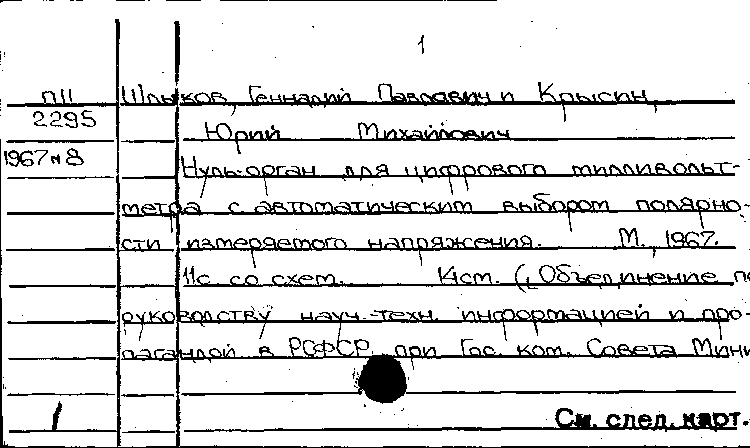 1
П11 Шлыков, Геннадий Павлович и Крысин,
2295 Юрий Михайлович
1967 N 8 Нуль-орган для цифрового милливольт-
метра с автоматическим выбором полярно-
сти измеряемого напряжения. М., 1967.
11с. со схем. 14см. (Объединение по
руководству науч.-техн. информацией и про-
пагандой в РСФСР при Гос. ком. Совета Мини
1 См. след. карт.